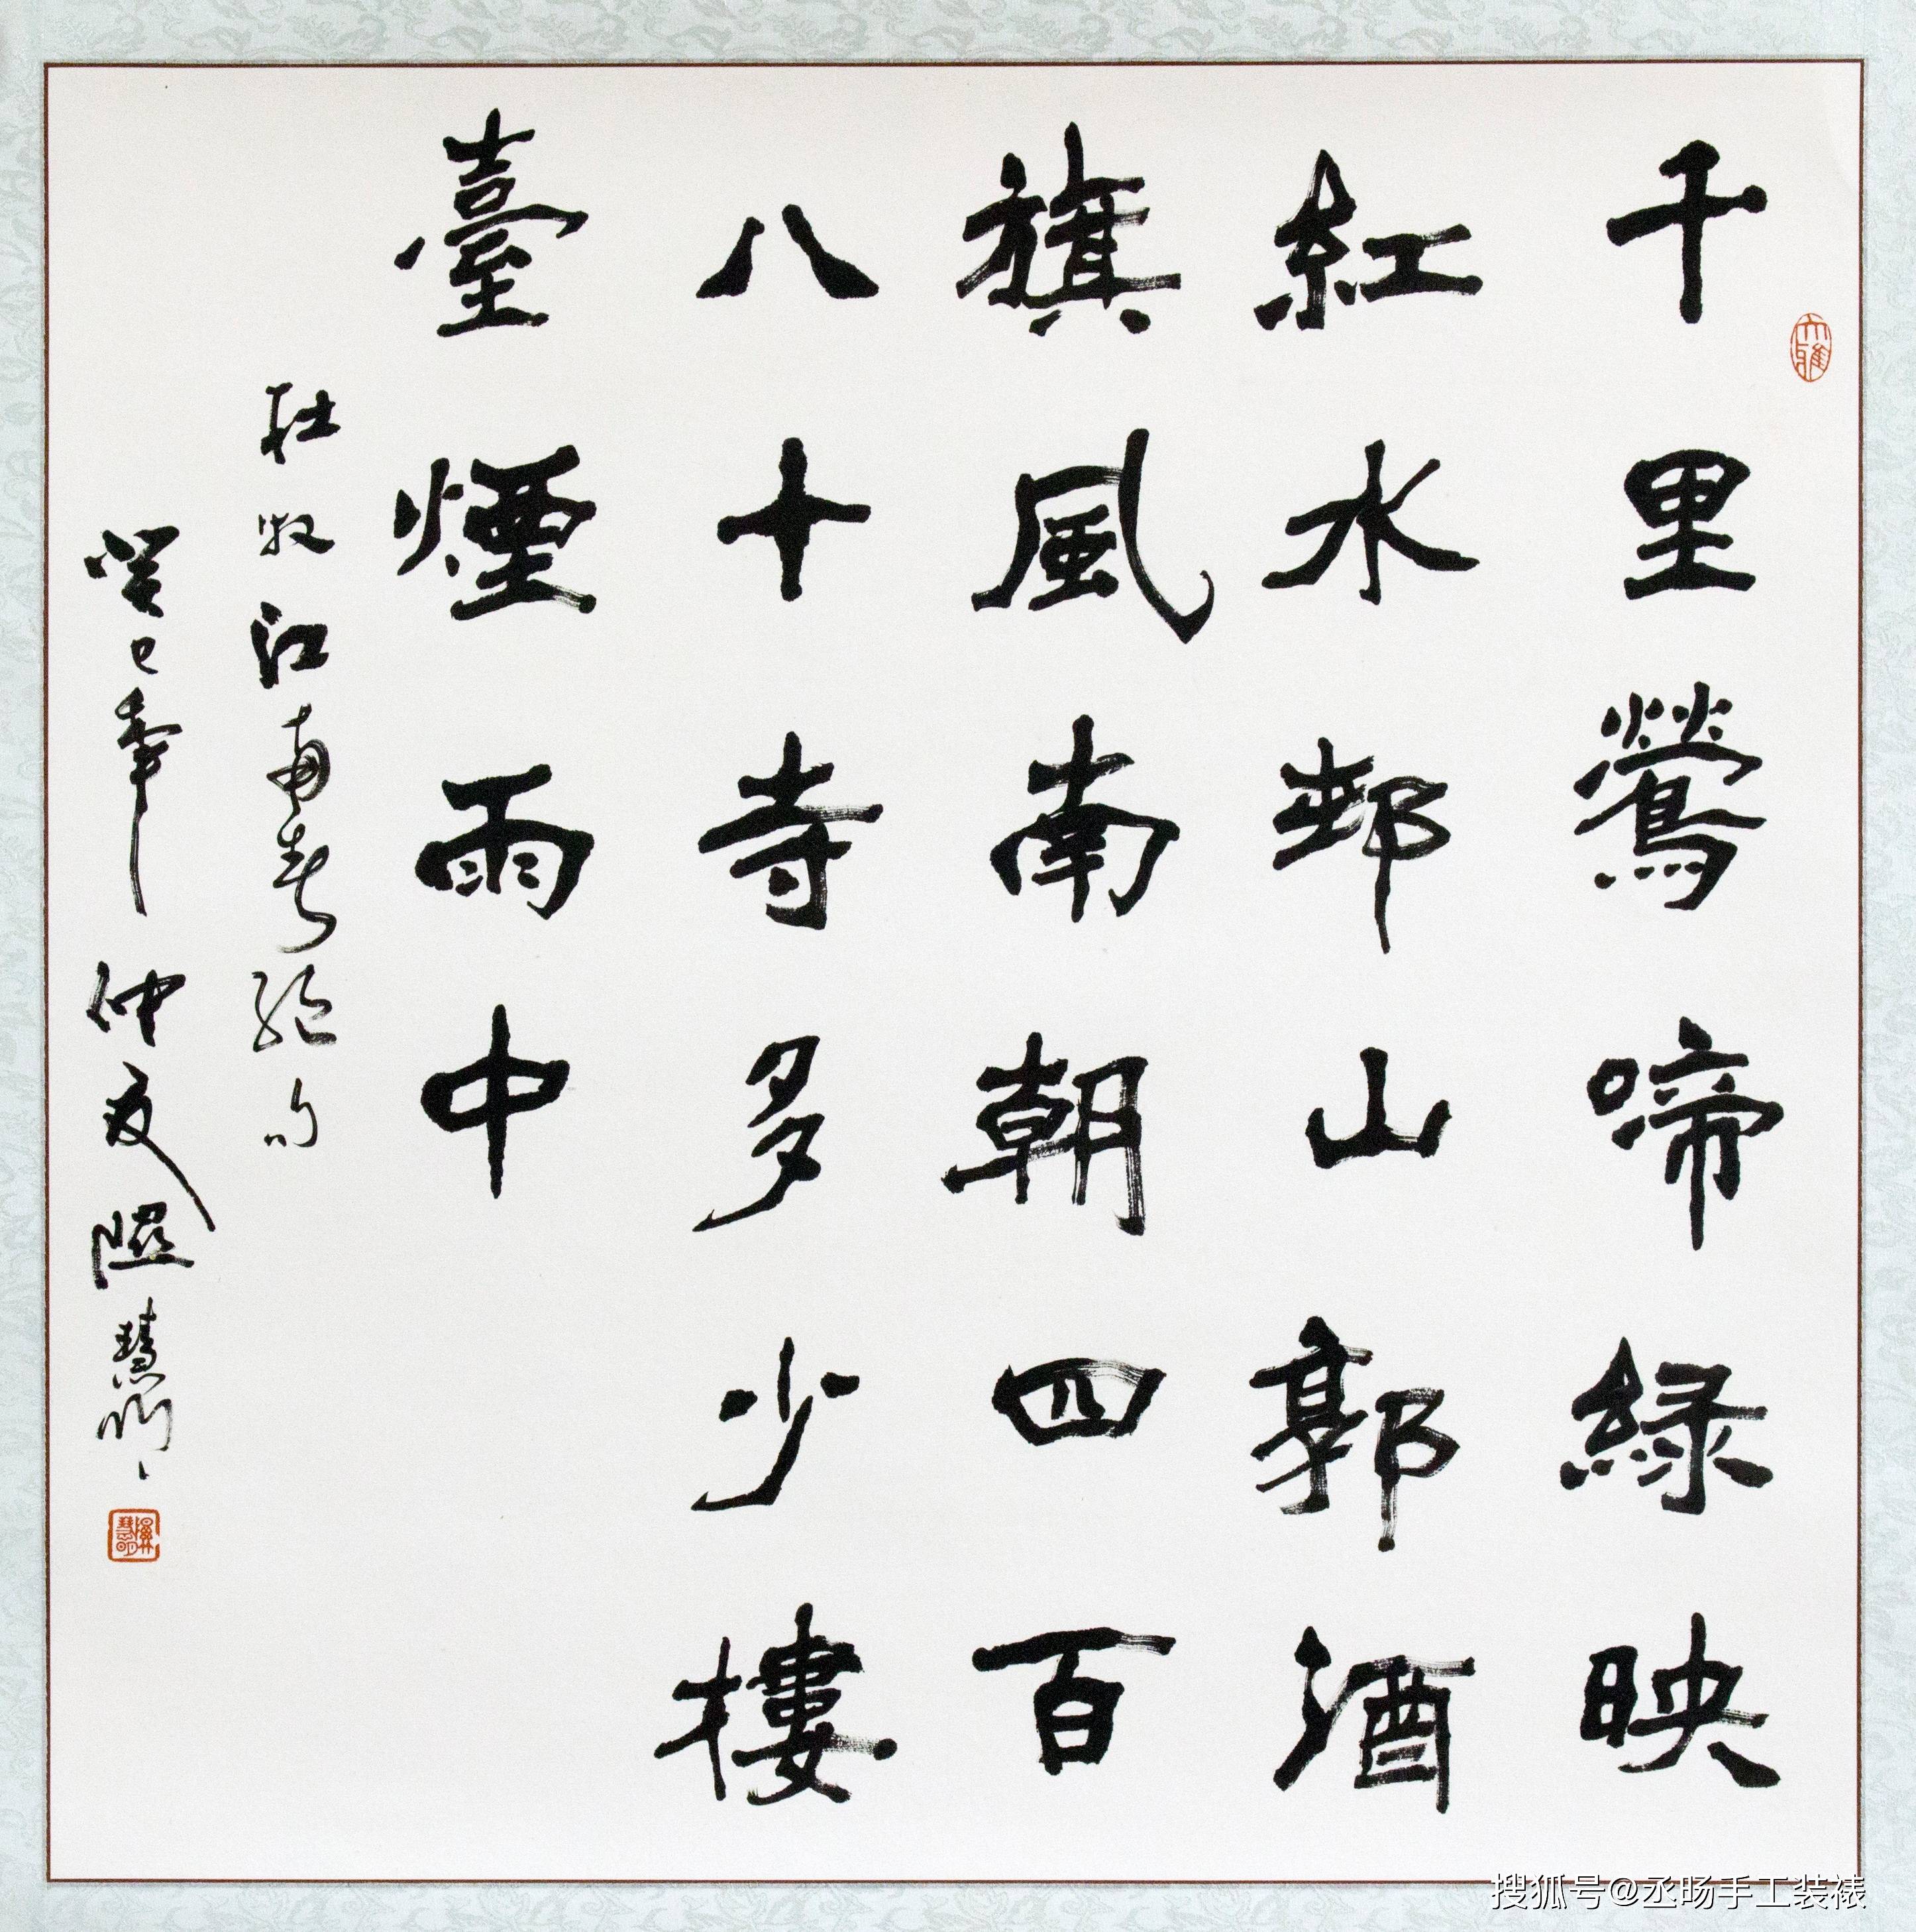 千里鶯啼緑映
紅水邨山郭酒
旗風南朝四百
八十寺多少樓
臺煙雨中
杜牧江南春絕句
癸巳年仲夏隰慧明
搜狐号@丞旸手工装裱